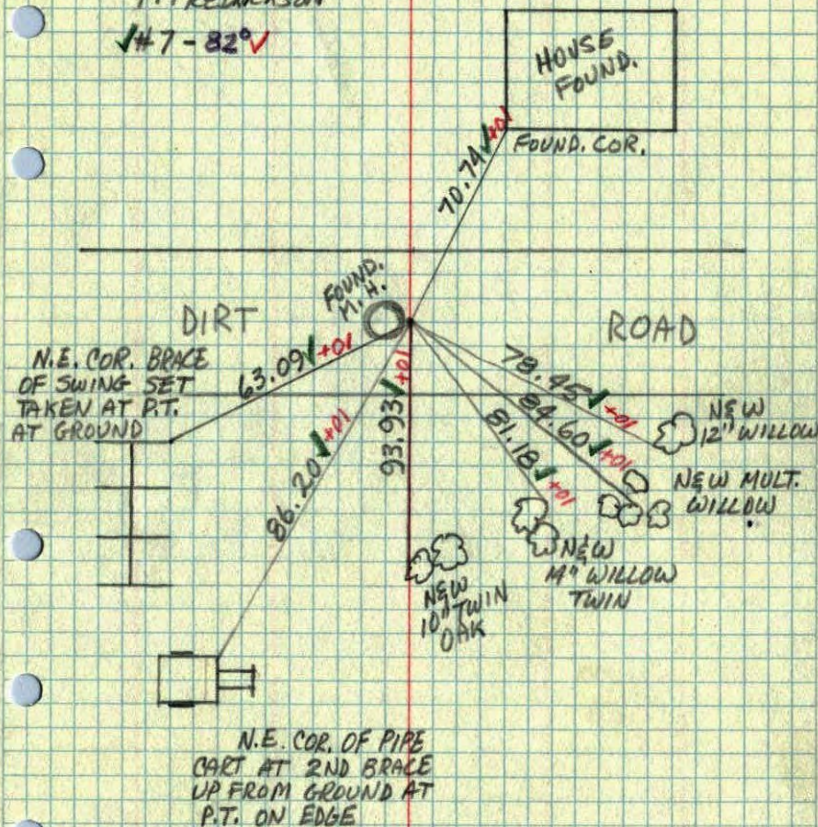 ✓#7 - 82° ✓
HOUSE
FOUND.
70.74 ✓ +01
FOUND. COR.
FOUND.
M.H.
DIRT
ROAD
N.E. COR. BRACE
OF SWING SET
TAKEN AT P.T.
AT GROUND
63.09 ✓ +01
86.20 ✓ +01
93.93 ✓ +01
79.45 ✓ +01
84.60 ✓ +01
81.18 ✓ +01
N&W
12" WILLOW
N&W MULT.
WILLOW
N&W
14" WILLOW
TWIN
N&W
10" TWIN
OAK
N.E. COR. OF PIPE
CART AT 2ND BRACE
UP FROM GROUND AT
P.T. ON EDGE